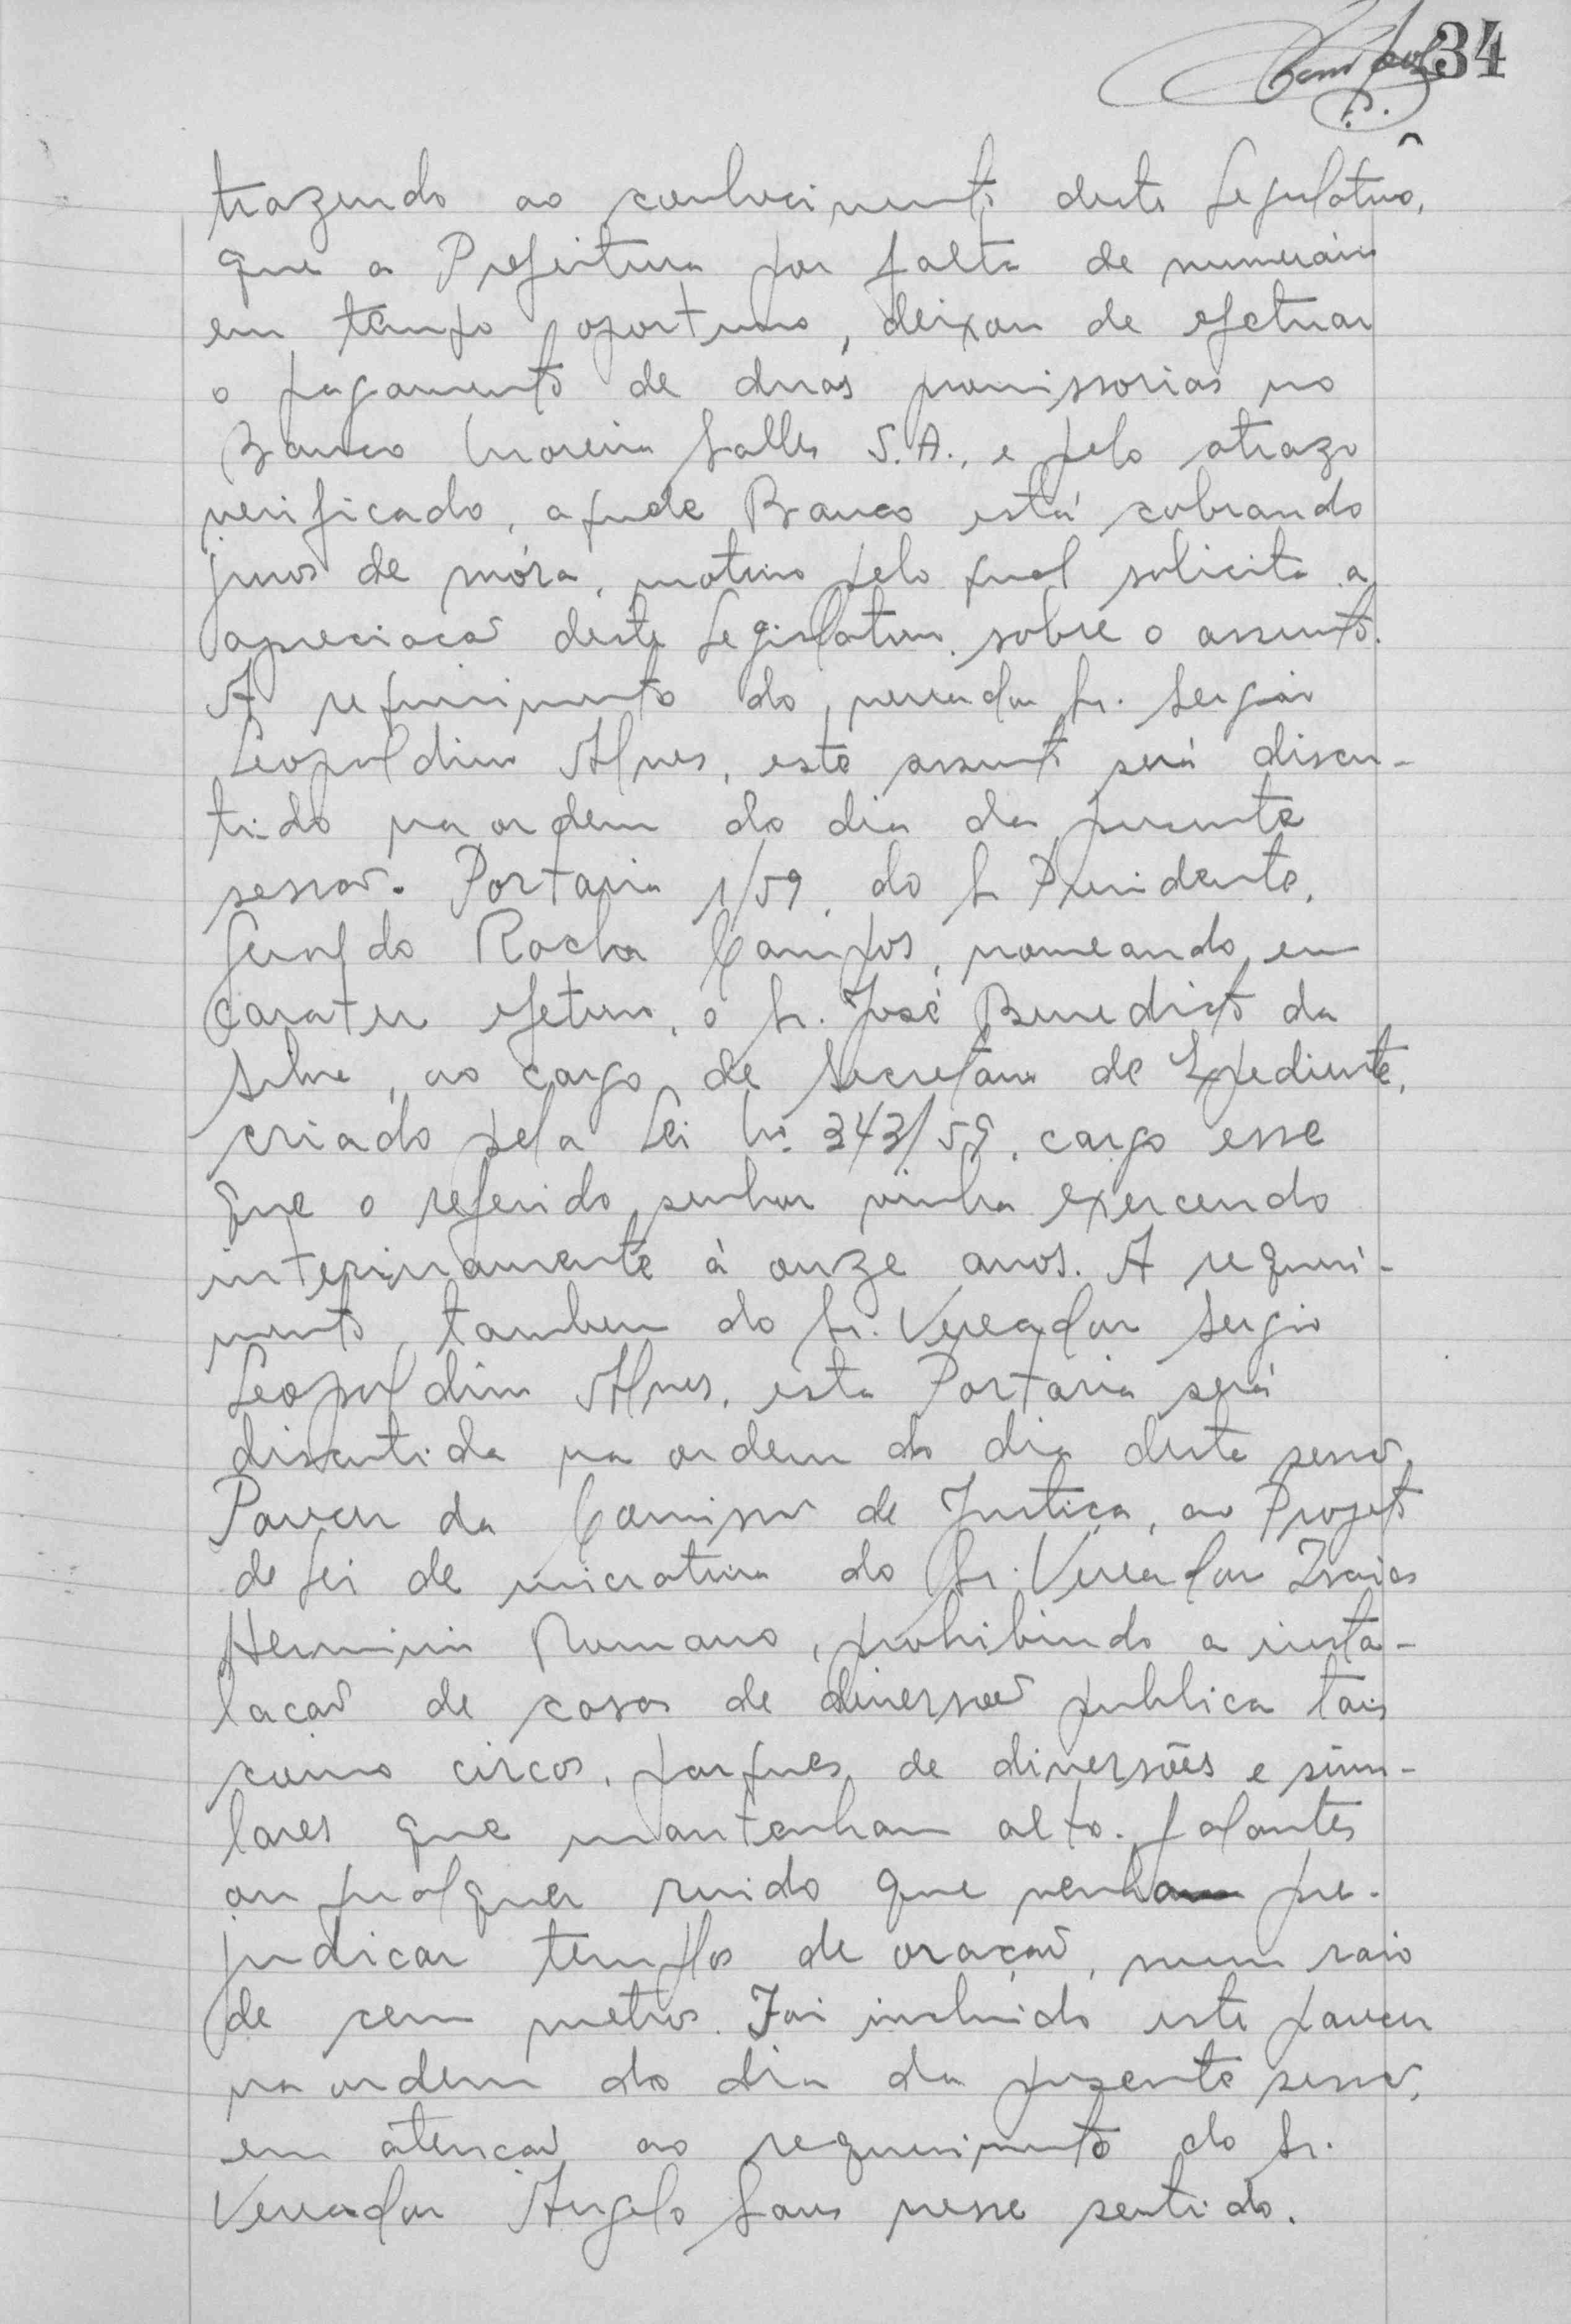 34
trazendo ao conhecimento deste Legislativo,
que a Prefeitura por falta de numerário
em tempo oportuno, deixou de efetuar
o pagamento de duas promissorias no
Banco Moreira Salles S.A., e pelo atrazo
verificado, aquele Banco está cobrando
juros de móra, motivo pelo qual solicita a
apreciacaõ deste Legislativo sobre o assunto.
A requerimento do vereador Sr. Sergio
Leopoldino Alves, este assunto será discu-
tido na ordem do dia da presente
sessaõ. Portaria 1/59, do Sr Presidente,
Geraldo Rocha Campos, nomeando em
carater efetivo, o Sr. José Benedicto da
Silva, ao cargo de Secretario de Expediente,
criado pela Lei Nº 343/59, cargo esse
que o referido senhor vinha exercendo
interinamente à onze anos. A requeri-
mento tambem do Sr. Vereador Sergio
Leopoldino Alves, esta Portaria será
discutida na ordem do dia desta sessaõ.
Parecer da Comissaõ de Justiça, ao Projeto
de Lei de iniciativa do Sr. Vereador Izaias
Herminio Romano, prohibindo a insta-
lacaõ de casas de diversoẽs publica tais
como circos, parques de diversões e simi-
lares que mantenham alto-falantes
ou qualquer ruido que venham pre-
judicar templos de oraçaõ, num raio
de cem metros. Foi incluido este parecer
na ordem do dia da presente sessaõ,
em atençaõ ao requerimento do Sr.
Vereador Angelo nesse sentido.